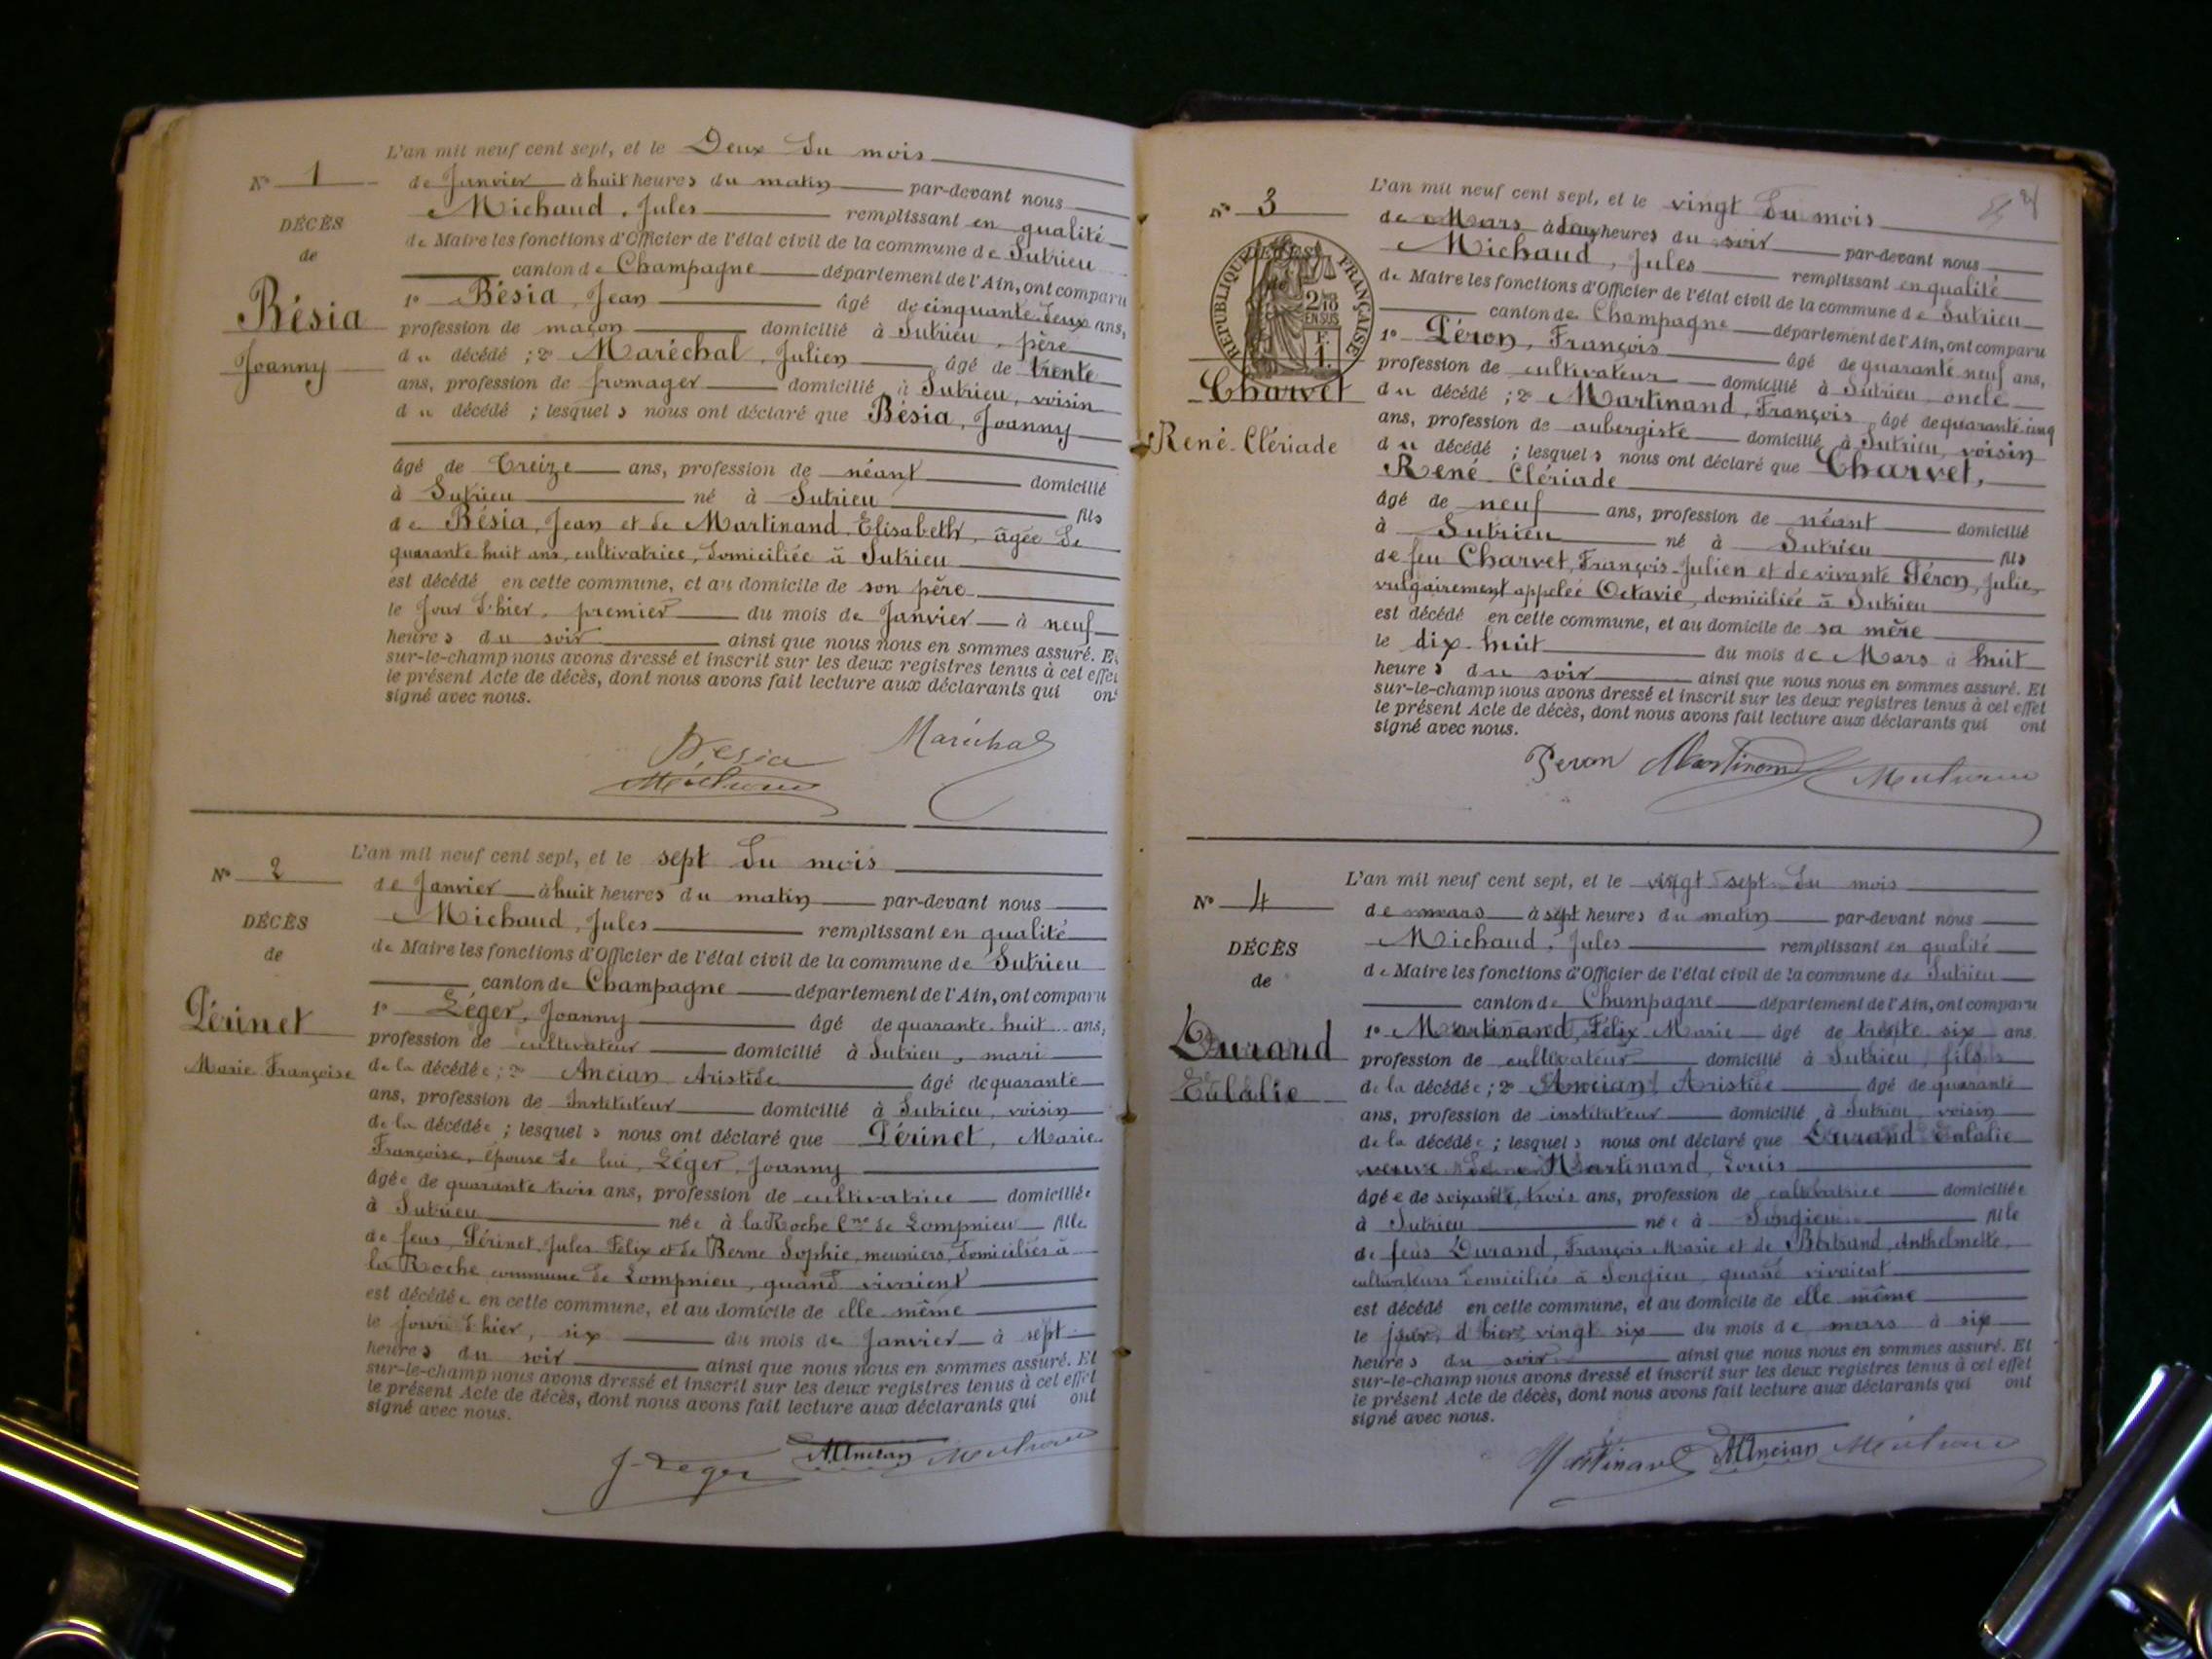 L'an mil neuf cent sept, et le Deux du mois
N° 1
de Janvier à huit heures du matin par-devant nous
Michaud, Jules remplissant en qualité
DÉCÈS
de Maire les fonctions d'Officier de l'état civil de la commune de Sutrieu
de
canton de Champagne département de l'Ain, ont comparu
Bésia
Joanny
1° Bésia, Jean âgé de cinquante-deux ans,
profession de maçon domicilié à Sutrieu, père
du décédé ; 2° Maréchal, Julien âgé de trente
ans, profession de fromager domicilié à Sutrieu, voisin
du décédé ; lesquels nous ont déclaré que Bésia, Joanny
âgé de Treize ans, profession de néant domicilié
à Sutrieu né à Sutrieu fils
de Bésia, Jean et de Martinand Elisabeth, âgée de
quarante huit ans, cultivatrice, domiciliée à Sutrieu
est décédé en cette commune, et au domicile de son père
le jour d'hier, premier du mois de Janvier à neuf
heures du soir ainsi que nous nous en sommes assuré. Et
sur-le-champ nous avons dressé et inscrit sur les deux registres tenus à cet effet
le présent Acte de décès, dont nous avons fait lecture aux déclarants qui ont
signé avec nous.
Bésia Maréchal
Michaud
L'an mil neuf cent sept, et le sept du mois
N° 2
de Janvier à huit heures du matin par-devant nous
Michaud, Jules remplissant en qualité
DÉCÈS
de Maire les fonctions d'Officier de l'état civil de la commune de Sutrieu
de
canton de Champagne département de l'Ain, ont comparu
Périnet
Marie Françoise
1° Léger, Joanny âgé de quarante-huit ans,
profession de cultivateur domicilié à Sutrieu, mari
de la décédée ; 2° Ancian Aristide âgé de quarante
ans, profession de Instituteur domicilié à Sutrieu, voisin
de la décédée ; lesquels nous ont déclaré que Périnet, Marie
Françoise, épouse de lui, Léger, Joanny
âgée de quarante trois ans, profession de cultivatrice domiciliée
à Sutrieu née à la Roche Cne de Lompnieu fille
de feus Périnet, Jules Félix et de Berne Sophie, meuniers, domiciliés à
la Roche commune de Lompnieu, quand vivaient
est décédée en cette commune, et au domicile de elle même
le jour d'hier, six du mois de Janvier à sept
heures du soir ainsi que nous nous en sommes assuré. Et
sur-le-champ nous avons dressé et inscrit sur les deux registres tenus à cet effet
le présent Acte de décès, dont nous avons fait lecture aux déclarants qui ont
signé avec nous.
J. Léger A Ancian Michaud
L'an mil neuf cent sept, et le vingt du mois
N° 3
de Mars à deux heures du soir par-devant nous
Michaud, Jules remplissant en qualité
RÉPUBLIQUE FRANÇAISE
2/10 EN SUS
F. 1
de Maire les fonctions d'Officier de l'état civil de la commune de Sutrieu
canton de Champagne département de l'Ain, ont comparu
Charvet
René-Clériade
1° Péron, François âgé de quarante neuf ans,
profession de cultivateur domicilié à Sutrieu oncle
du décédé ; 2° Martinand, François âgé de quarante-cinq
ans, profession de aubergiste domicilié à Sutrieu, voisin
du décédé ; lesquels nous ont déclaré que Charvet,
René-Clériade
âgé de neuf ans, profession de néant domicilié
à Sutrieu né à Sutrieu fils
de feu Charvet, François-Julien et de vivante Péron, Julie,
vulgairement appelée Octavie, domiciliée à Sutrieu
est décédé en cette commune, et au domicile de sa mère
le dix-huit du mois de Mars à huit
heures du soir ainsi que nous nous en sommes assuré. Et
sur-le-champ nous avons dressé et inscrit sur les deux registres tenus à cet effet
le présent Acte de décès, dont nous avons fait lecture aux déclarants qui ont
signé avec nous.
Peron Martinand Michaud
L'an mil neuf cent sept, et le vingt sept du mois
N° 4
de mars à sept heures du matin par-devant nous
Michaud, Jules remplissant en qualité
DÉCÈS
de Maire les fonctions d'Officier de l'état civil de la commune de Sutrieu
de
canton de Champagne département de l'Ain, ont comparu
Durand
Eulalie
1° Martinand, Félix Marie âgé de trente six ans.
profession de cultivateur domicilié à Sutrieu, fils
de la décédée ; 2° Ancian, Aristide âgé de quarante
ans, profession de instituteur domicilié à Sutrieu, voisin
de la décédée ; lesquels nous ont déclaré que Durand Eulalie
veuve de Martinand, Louis
âgée de soixante, trois ans, profession de cultivatrice domiciliée
à Sutrieu née à Songieu fille
de feus Durand, François Marie et de Bertrand, Anthelmette,
cultivateurs domiciliés à Songieu, quand vivaient
est décédé en cette commune, et au domicile de elle même
le jour, d'hier, vingt six du mois de mars à six
heures du soir ainsi que nous nous en sommes assuré. Et
sur-le-champ nous avons dressé et inscrit sur les deux registres tenus à cet effet
le présent Acte de décès, dont nous avons fait lecture aux déclarants qui ont
signé avec nous.
Martinand A Ancian Michaud